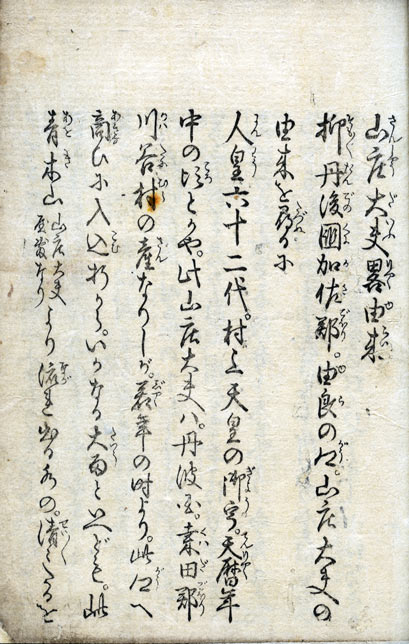 山庄大夫畧由来
抑丹後國加佐郡。由良の郷。山庄大夫の
由来を尋るに
人皇六十二代。村上天皇の御宇。天暦年
中の頃とかや。此山庄大夫ハ。丹波国。桑田郡
川谷村の産なりしが。若年の時より。此郷へ
商ひに入込折から。いかなる大雨といへども。此
青木山 山庄大夫 屋敷なり より流れ出る水の。